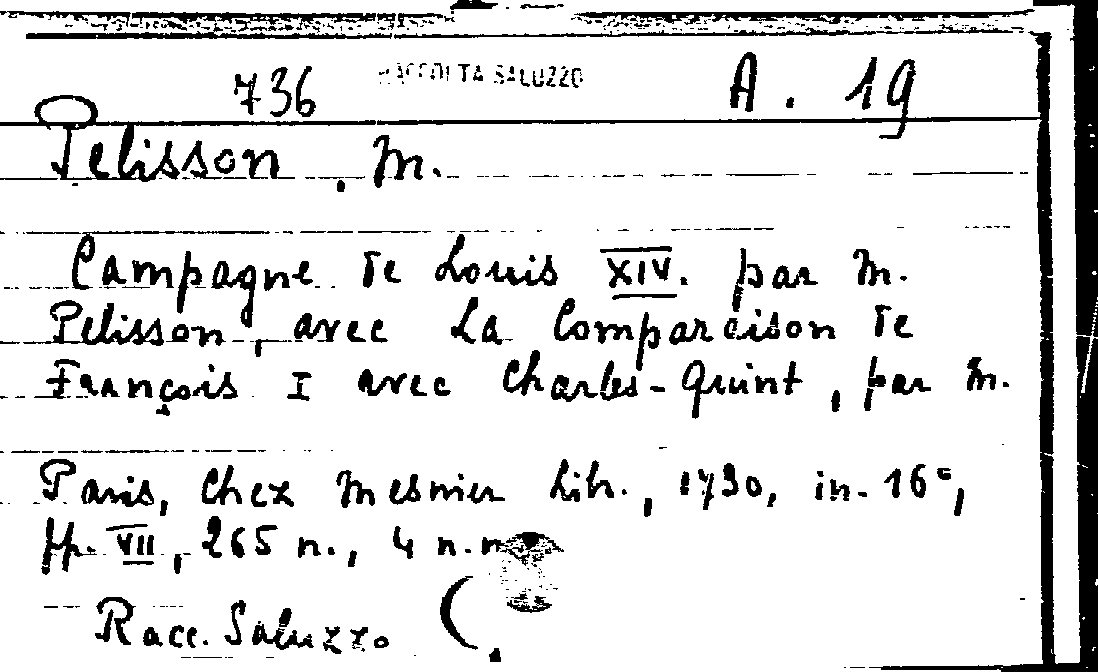 736 RACCOLTA SALUZZO A. 19
Pelisson, M.
Campagne de Louis XIV. par M.
Pelisson, avec la Comparaison de
François I avec Charles-Quint, par M.
Paris, Chez Mesnier Libr., 1730, in-16°,
pp. VII, 265 n., 4 n.n.
Racc. Saluzzo